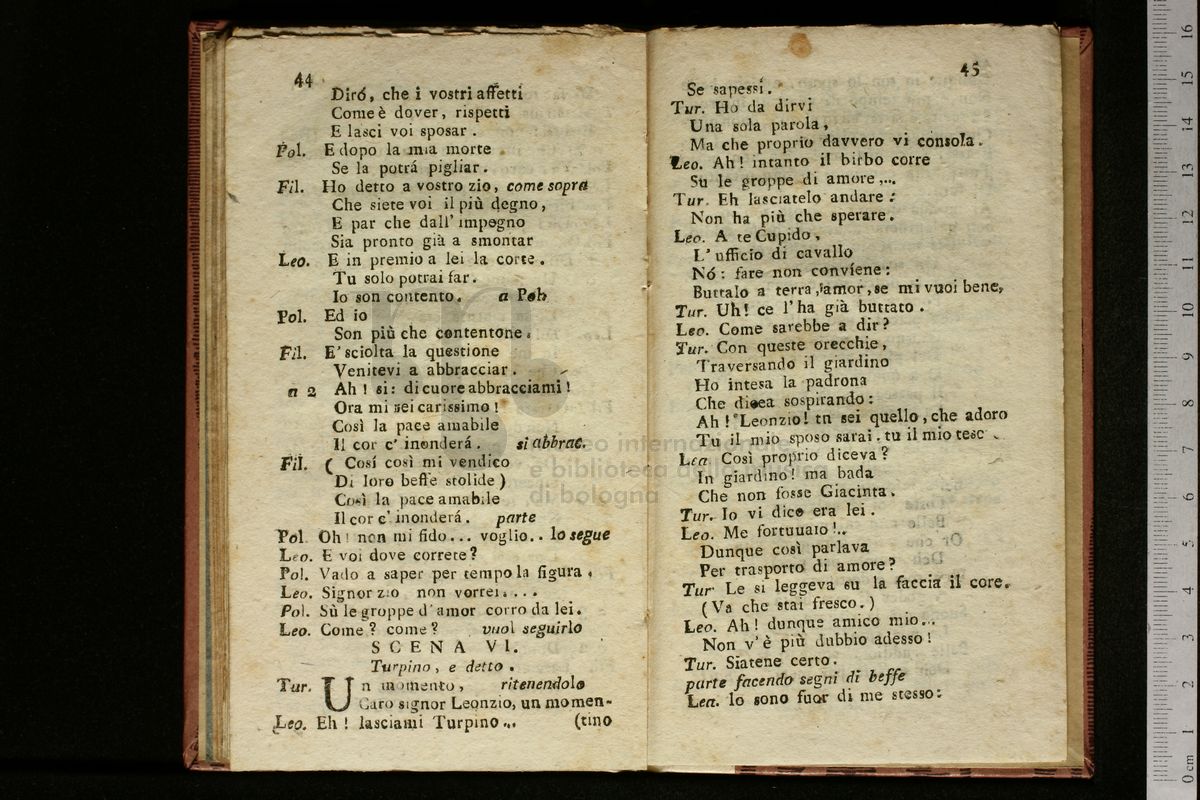 44
Diró, che i vostri affetti
Come è dover, rispetti
E lasci voi sposar .
Pol. E dopo la mia morte .
Se la potrá pigliar .
Fil. Ho detto a vostro zio, come sopra
Che siete voi il più degno,
E par che dall' impegno
Sia pronto già a smontar
Leo. E in premio a lei la corte .
Tu solo potrai far .
Io son contento . a Pol.
Pol. Ed io
Son più che contentone .
Fil. E' sciolta la questione
Venitevi a abbracciar .
a 2 Ah ! si : di cuore abbracciami !
Ora mi sei carissimo !
Così la pace amabile
Il cor c' inonderá . si abbrac.
Fil. ( Cosí così mi vendico
Di loro beffe stolide )
Così la pace amabile
Il cor c' inonderá . parte
Pol. Oh ! non mi fido... voglio.. lo segue
Leo. E voi dove correte ?
Pol. Vado a saper per tempo la figura .
Leo. Signor zio non vorrei....
Pol. Sù le groppe d' amor corro da lei.
Leo. Come ? come ? vuol seguirlo
SCENA VI.
Turpino, e detto .
Tur. Un momento, ritenendolo
Caro signor Leonzio, un momen-
Leo. Eh ! lasciami Turpino ... (tino
45
Se sapessí .
Tur. Ho da dirvi
Una sola parola,
Ma che proprio davvero vi consola.
Leo. Ah ! intanto il birbo corre
Su le groppe di amore ,...
Tur. Eh lasciatelo andare :
Non ha più che sperare.
Leo. A te Cupido ,
L' ufficio di cavallo
Nó : fare non convíene :
Buttalo a terra , amor , se mi vuoi bene,
Tur. Uh ! ce l' ha già buttato .
Leo. Come sarebbe a dir ?
Tur. Con queste orecchie,
Traversando il giardino
Ho intesa la padrona
Che dicea sospirando :
Ah ! Leonzio ! tn sei quello , che adoro
Tu il mio sposo sarai . tu il mio tesc
Lea Così proprio diceva ?
In giardino ! ma bada
Che non fosse Giacinta .
Tur. Io vi dico era lei .
Leo. Me fortuuato !..
Dunque così parlava
Per trasporto di amore ?
Tur Le si leggeva su la faccia il core.
( Va che stai fresco . )
Leo. Ah ! dunque amico mio...
Non v' è più dubbio adesso !
Tur. Siatene certo.
parte facendo segni di beffe
Lea. Io sono fuor di me stesso :
museo internazionale
e biblioteca della musica
di bologna
0 cm 1 2 3 4 5 6 7 8 9 10 11 12 13 14 15 16